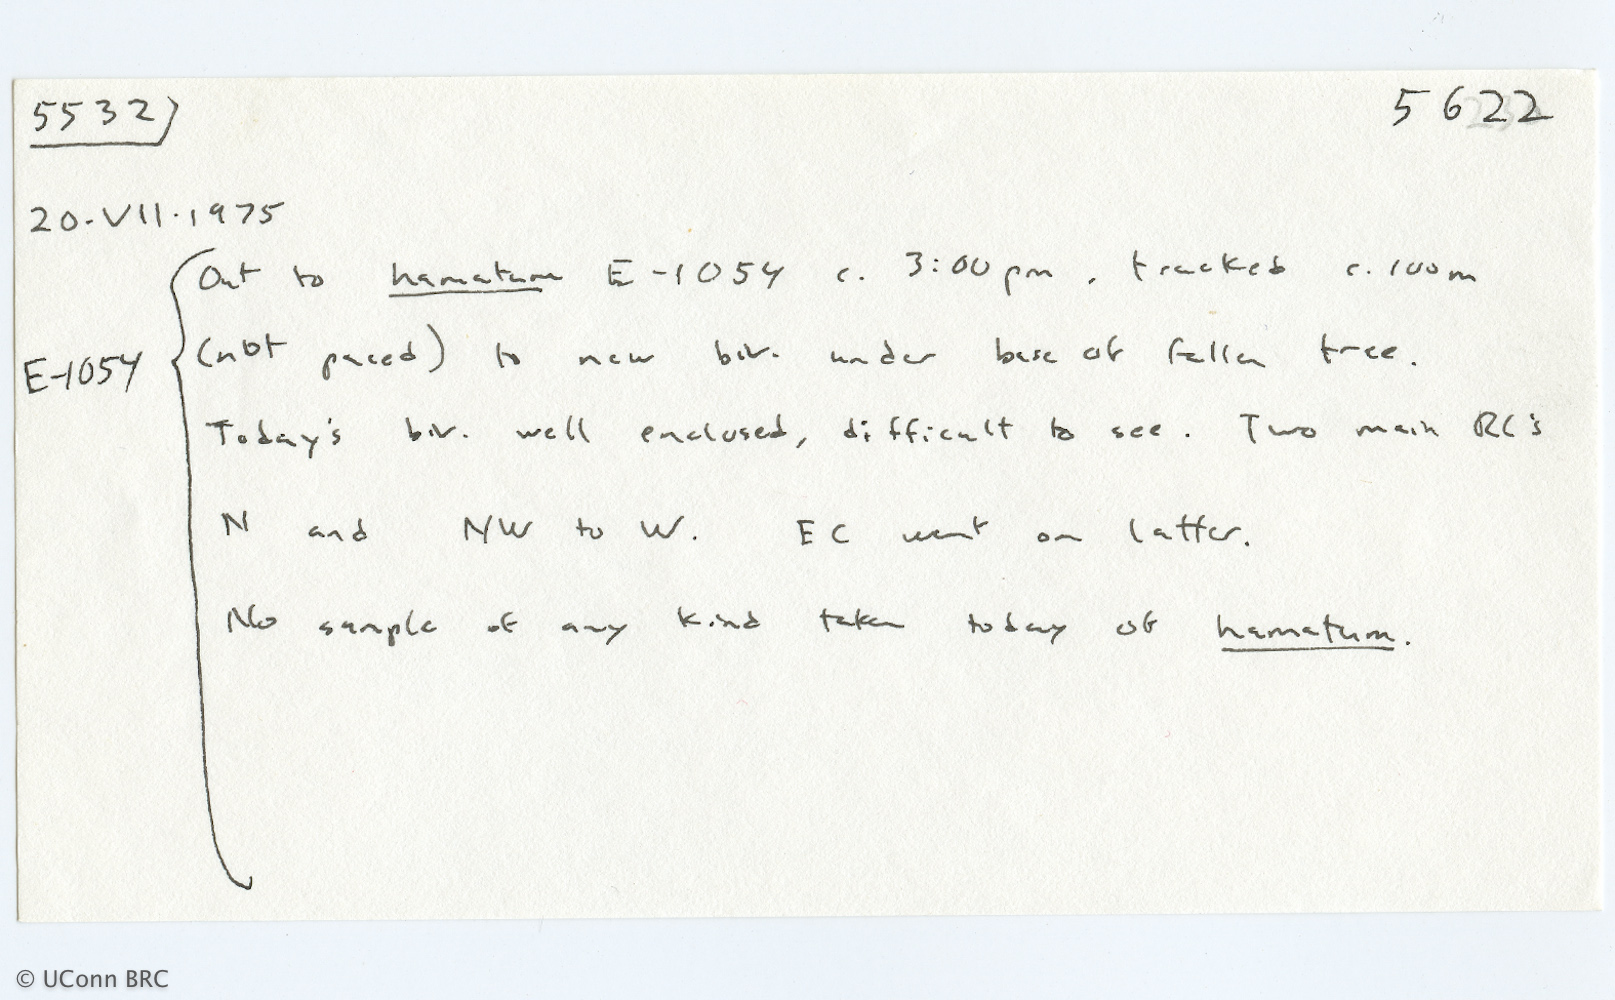 5532
5622
20.VII.1975
E-1054
Out to hamatum E-1054 c. 3:00 pm, tracked c. 100m
(not paced) to new biv. under base of fallen tree.
Today's biv. well enclosed, difficult to see. Two main RC's
N and NW to W. EC went on latter.
No sample of any kind taken today of hamatum.
© UConn BRC